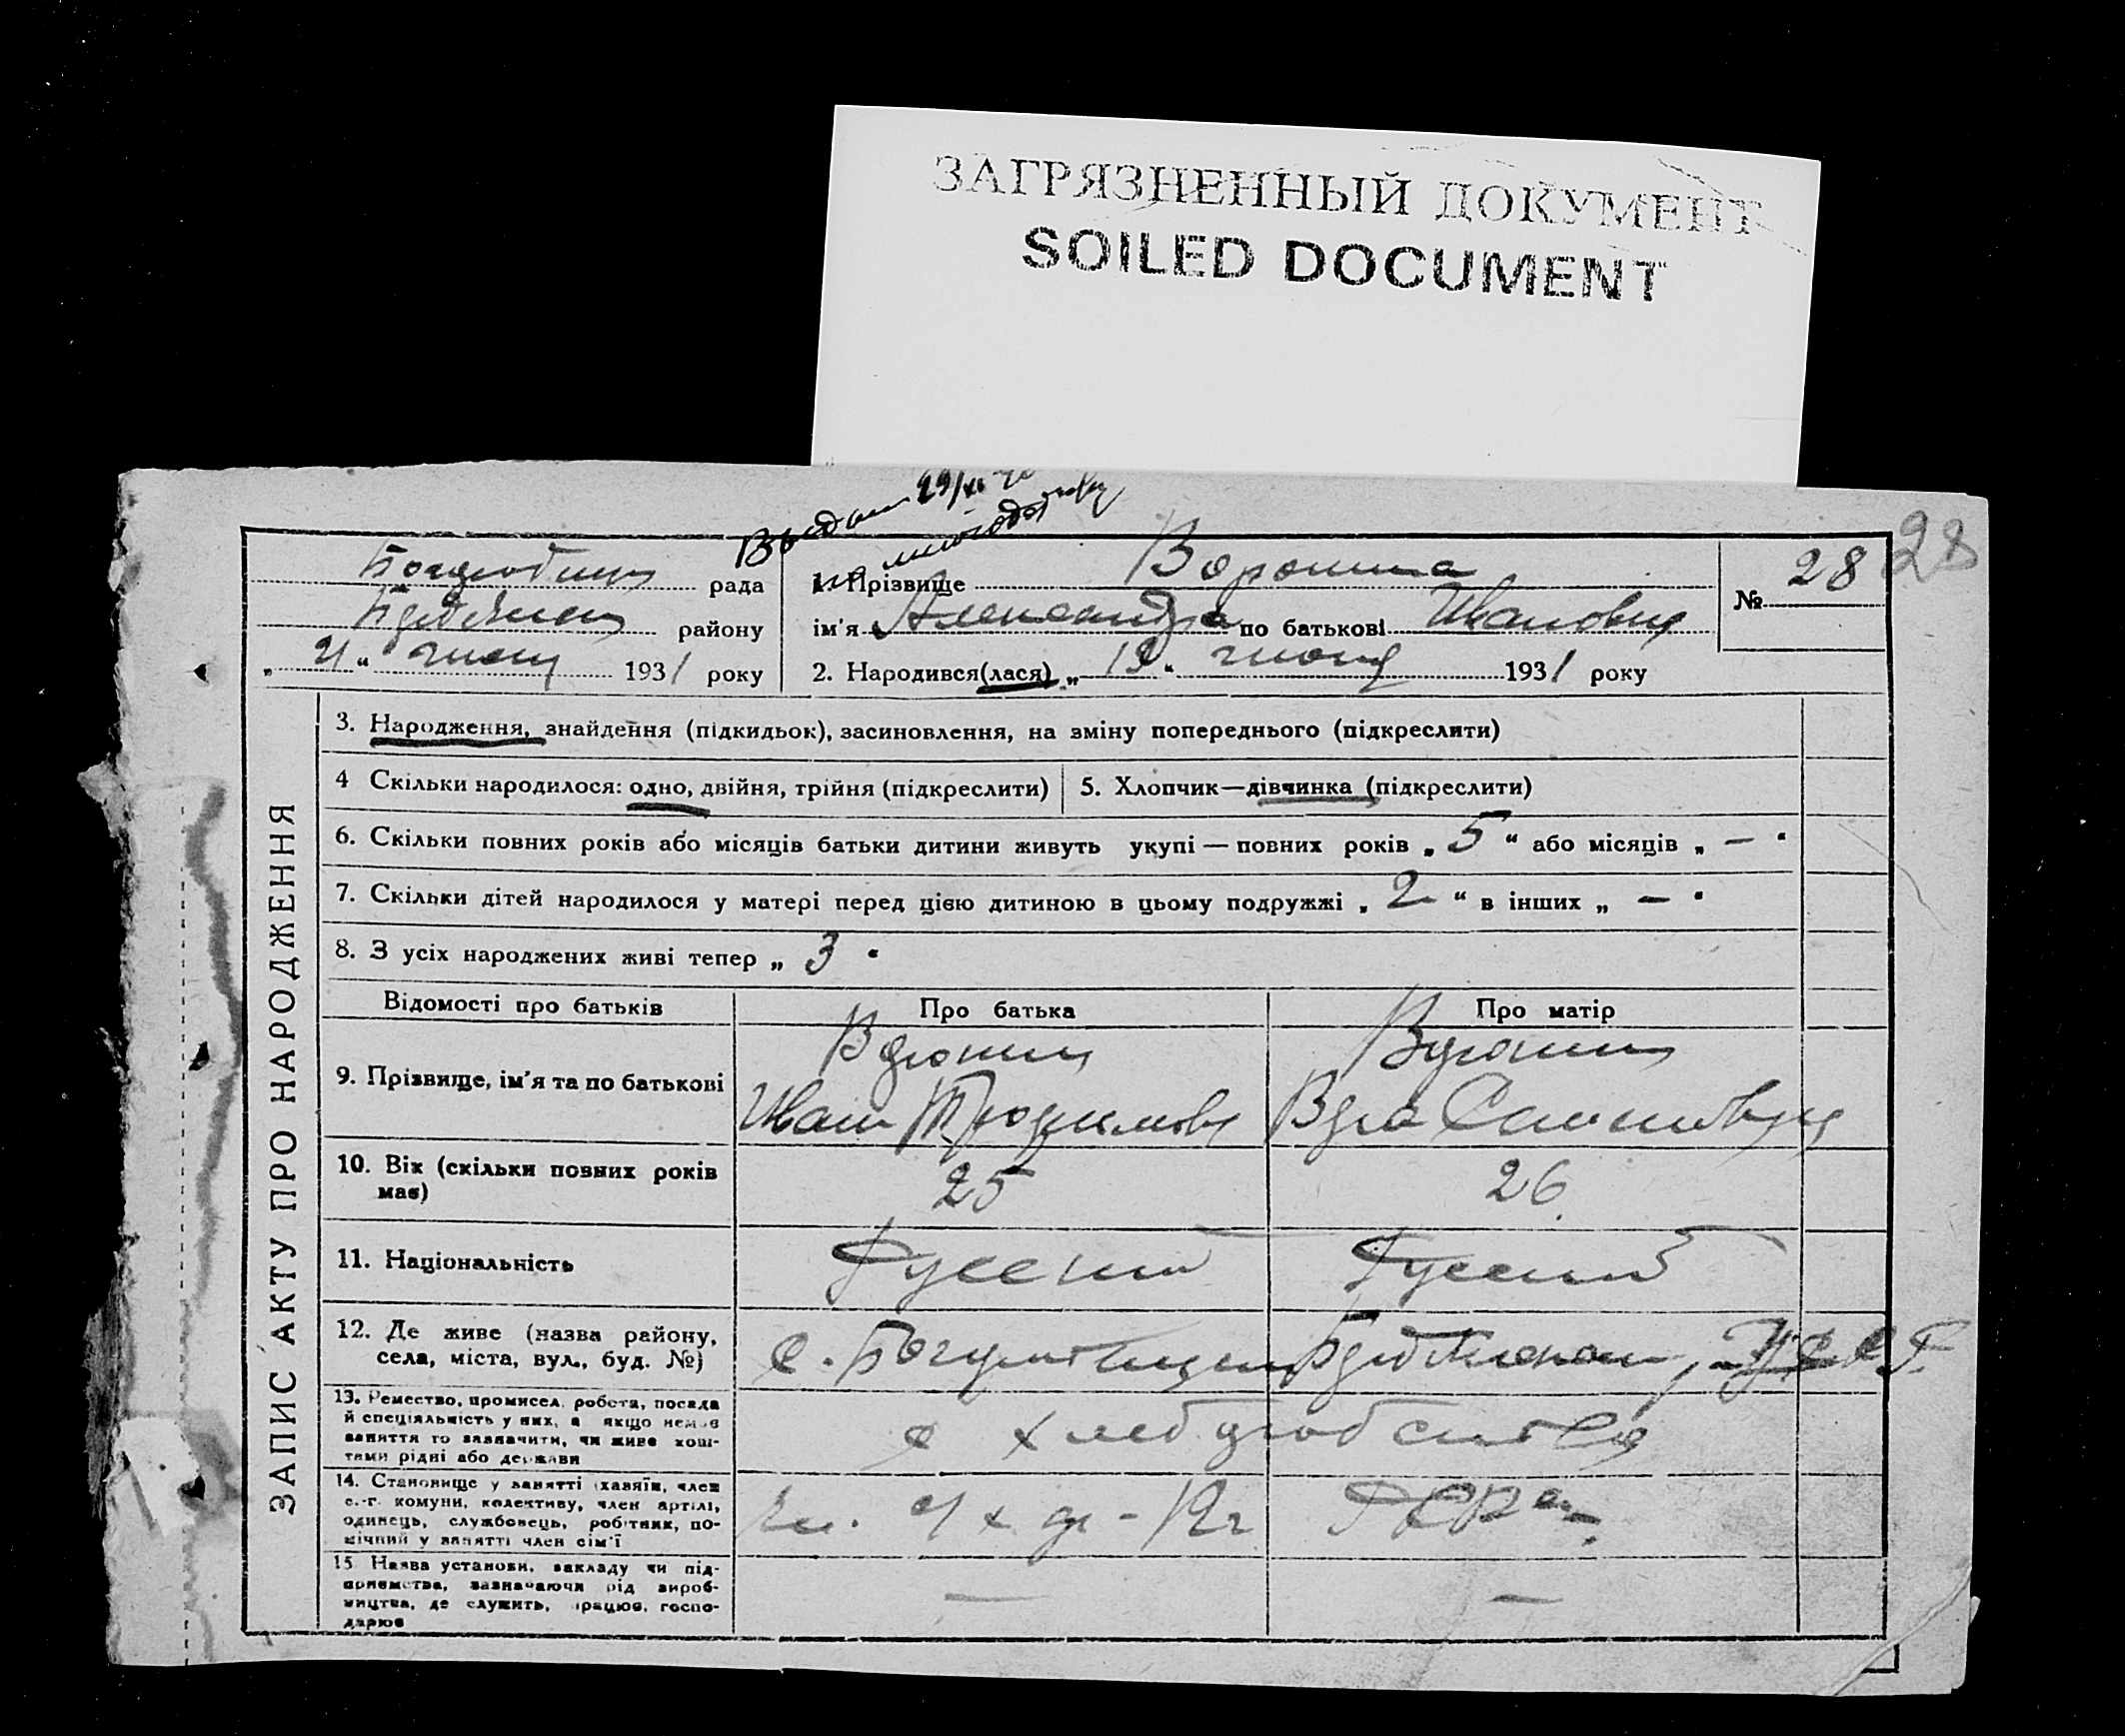 ЗАГРЯЗНЕННЫЙ ДОКУМЕНТ
SOILED DOCUMENT
28
рада
району
„ 21 “ июня 1931 року
1. Прізвище Воронина
ім'я Александра по батькові Ивановна
2. Народився(лася) „ 19 “ июня 1931 року
№ 28
ЗАПИС АКТУ ПРО НАРОДЖЕННЯ
3. Народження, знайдення (підкидьок), засиновлення, на зміну попереднього (підкреслити)
4 Скільки народилося: одно, двійня, трійня (підкреслити)
5. Хлопчик—дівчинка (підкреслити)
6. Скільки повних років або місяців батьки дитини живуть укупі — повних років „ 5 “ або місяців „ — “
7. Скільки дітей народилося у матері перед цією дитиною в цьому подружжі „ 2 “ в інших „ — “
8. З усіх народжених живі тепер „ 3 “
Відомості про батьків
Про батька
Про матір
9. Прізвище, ім'я та по батькові
Воронин
Иван
Вера
10. Вік (скільки повних років
має)
25
26
11. Національність
Русский
Русский
12. Де живе (назва району,
села, міста, вул., буд. №)
с.
13. Ремество, промисел, робота, посада
й спеціяльність у них, а якщо немає
заняття то зазначити, чи живе кош-
тами рідні або держави
14. Становище у занятті (хазяїн, член
с.-г. комуни, колективу, член артілі,
одинець, службовець, робітник, по-
мічний у занятті член сім'ї
15 Назва установи, закладу чи під-
приємства, зазначаючи рід вироб-
ництва, де служить, працює, госпо-
дарює
—
—